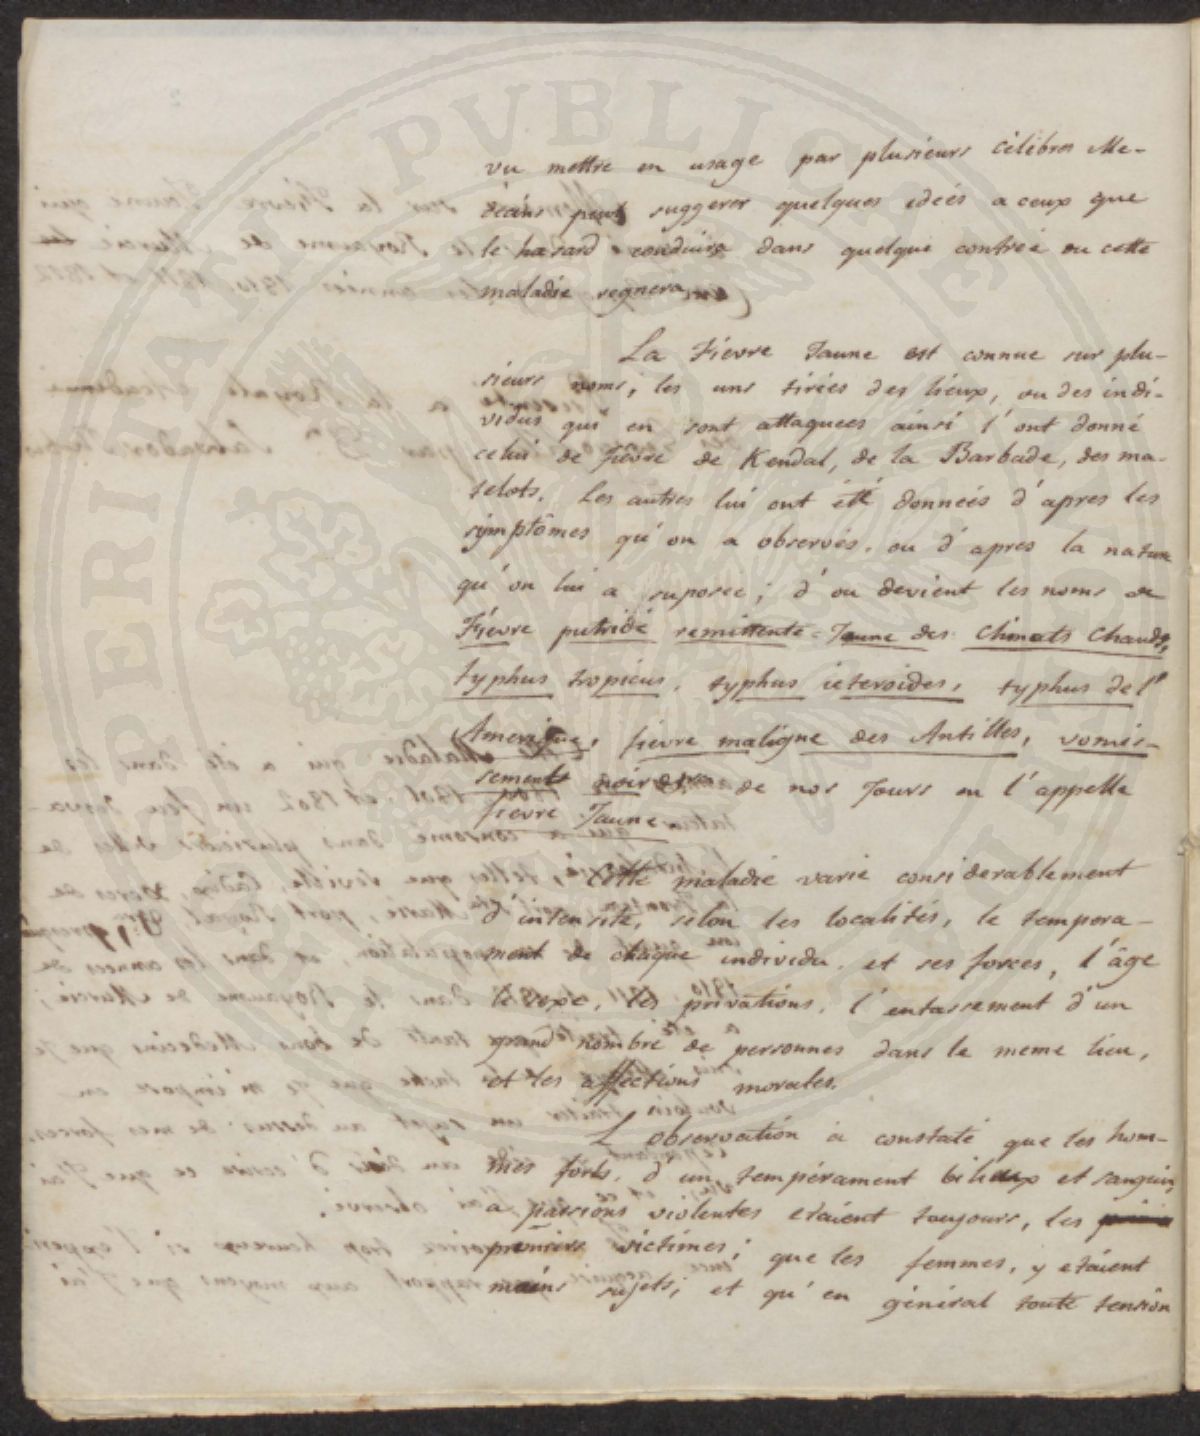 vu mettre en usage par plusieurs célébres Me-
decins peut suggerer quelques ideés a ceux que
le hasard conduira dans quelque contreé ou cette
maladie regnera.
La Fievre Jaune est connue sur plu-
sieurs noms; les uns tireés des lieux, ou des indi-
vidus qui en sont attaquees ainsi l'ont donné
celui de fievre de Kendal, de la Barbade, des ma-
telots. Les autres lui ont été donneés d'apres les
symptômes qu'on a observés, ou d'apres la nature
qu'on lui a suposeé; d'ou devient les noms de
Fiévre putride remittente Jaune des Climats Chauds,
typhus tropicus, typhus icteroides, typhus de l'
Amerique, fievre maligne des Antilles, vomis-
sement noir de nos Jours on l'appelle
fievre Jaune.
Cette maladie varie considerablement
d'intensité, selon les localités, le tempera-
ment de chaque individu, et ses forces, l'âge
le sexe, les privations, l'entassement d'un
grand nombre de personnes dans le meme lieu,
et les affections morales.
L'observation a constaté que les hom-
mes forts, d'un tempérament bilieux et sanguin
a passions violentes etaient toujours, les
premiers victimes; que les femmes, y etaient
moins sujets; et qu'en général toute tension
PERITATE PUBLICAE